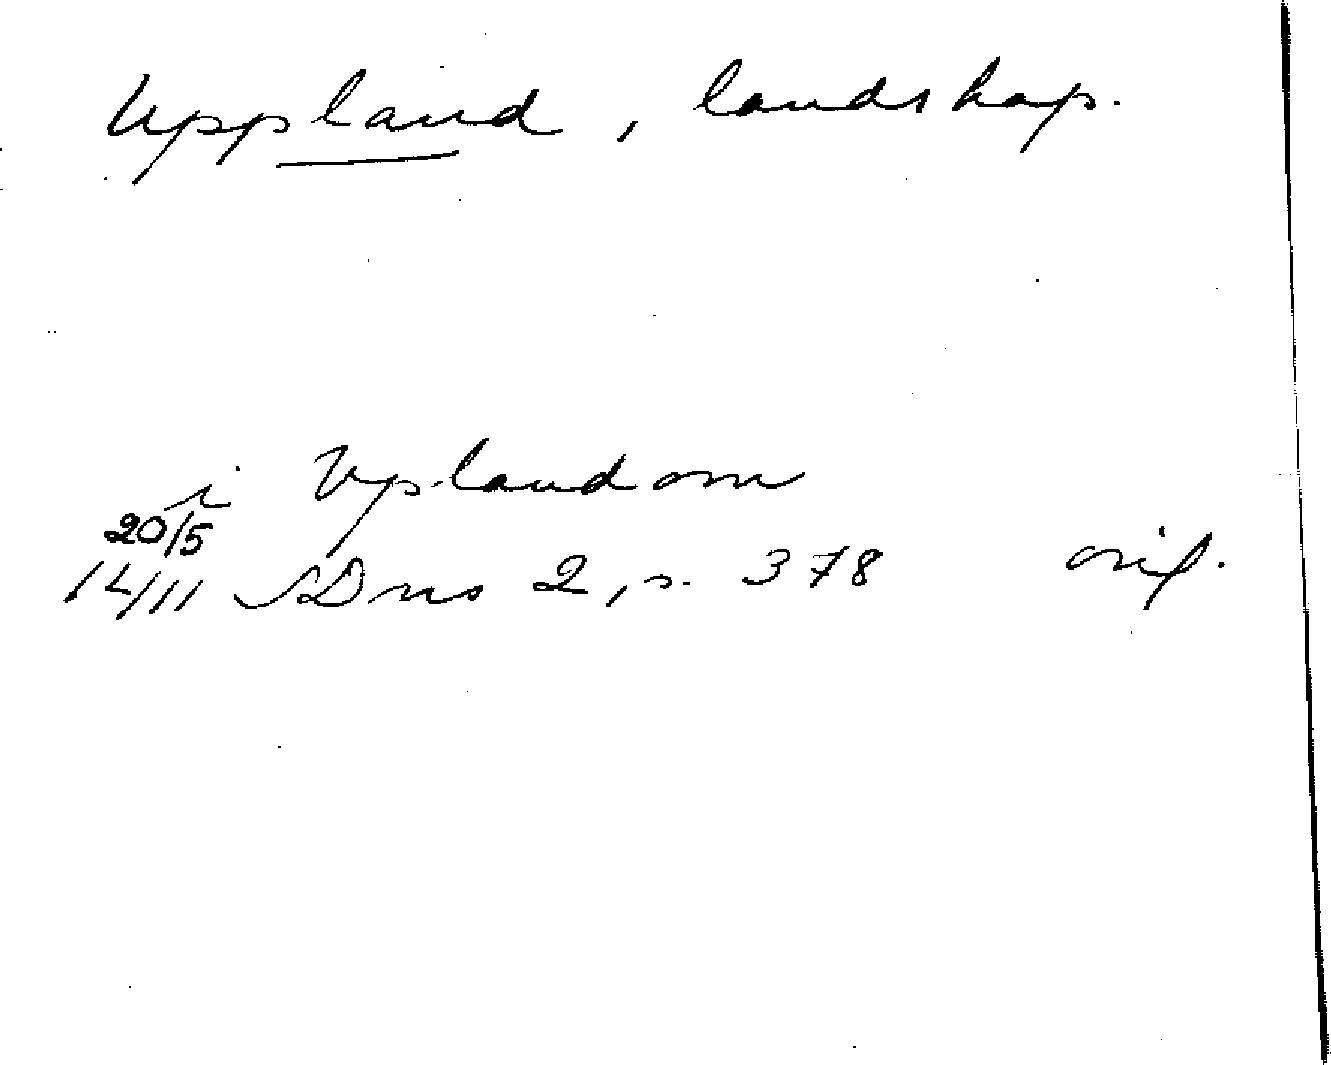 Uppland, landskap.
i Vplandom
20/5
1411 SDns 2, s. 378 orig.